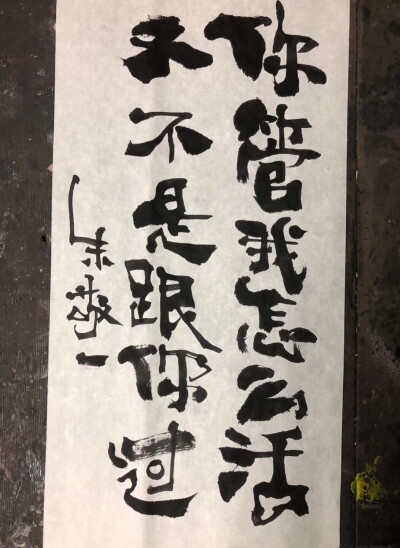 你管我怎么活
又不是跟你过
朱敬一